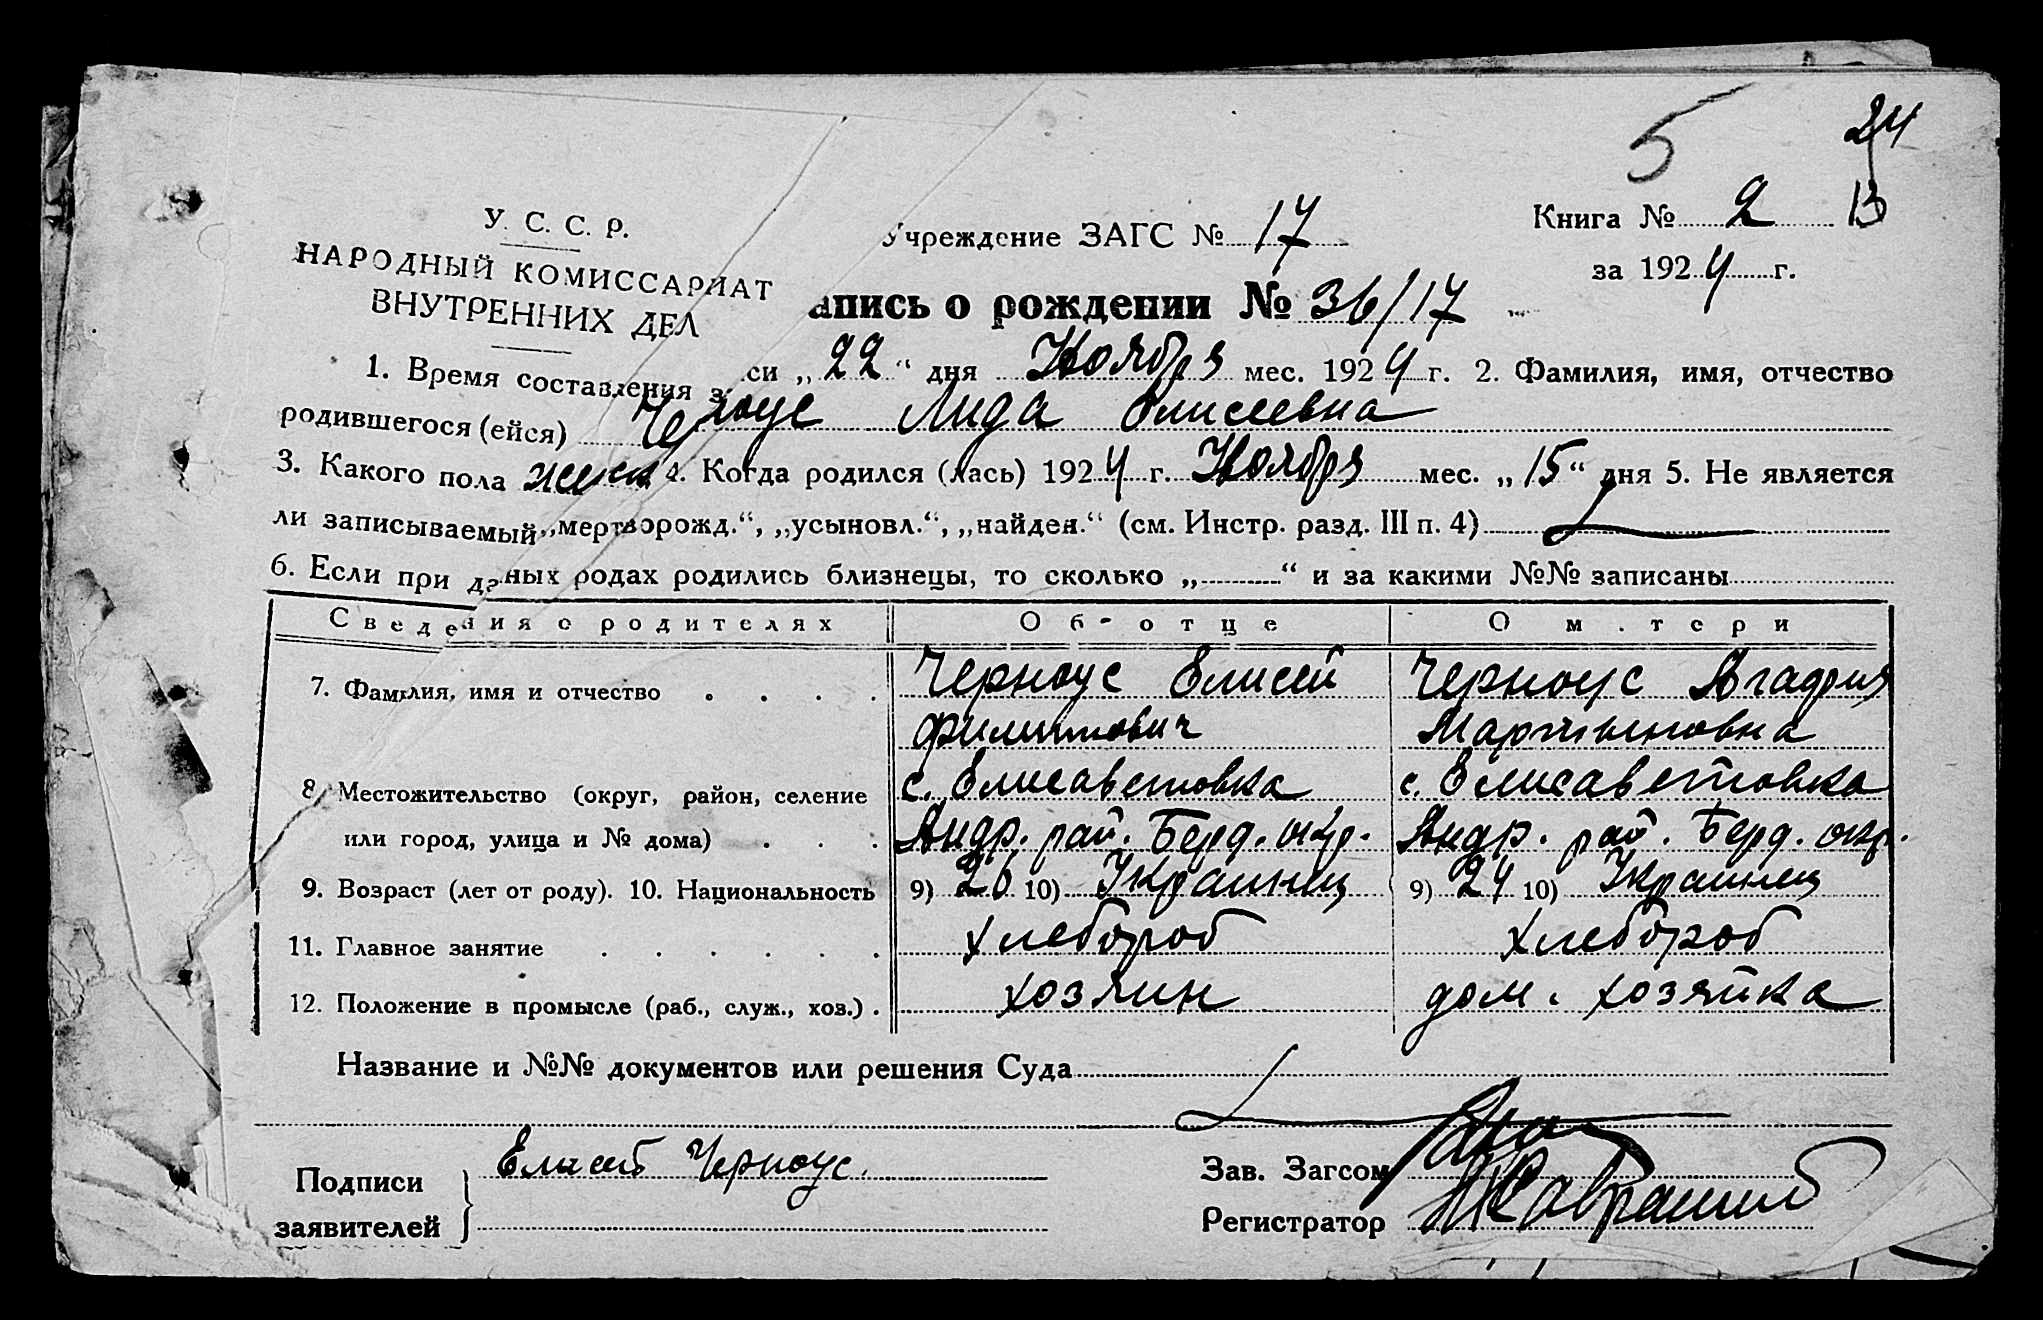 5 24
У. С. С. Р. Учреждение ЗАГС № 17 Книга № 2 13
НАРОДНЫЙ КОМИССАРИАТ за 1924 г.
ВНУТРЕННИХ ДЕЛ апись о рождении № 36/17
1. Время составления з си „22“ дня Ноября мес. 1924 г. 2. Фамилия, имя, отчество
родившегося (ейся) Черноус Лида Елисеевна
3. Какого пола женск 4. Когда родился (лась) 1924 г. Ноября мес. „15“ дня 5. Не является
ли записываемый „мертворожд.“, „усыновл.“, „найден.“ (см. Инстр. разд. III п. 4)
6. Если при данных родах родились близнецы, то сколько „ “ и за какими №№ записаны
Сведения о родителях Об отце О м.тери
7. Фамилия, имя и отчество Черноус Елисей Черноус Агафия
Филимнович Мартыновна
8. Местожительство (округ, район, селение с. Елисаветовка с. Елисаветовка
или город, улица и № дома) Андр. рай. Берд. окр. Андр. рай. Берд. окр.
9. Возраст (лет от роду). 10. Национальность 9) 26 10) Украинец 9) 24 10) Украинец
11. Главное занятие хлебороб хлебороб
12. Положение в промысле (раб., служ., хоз.) хозяин дом. хозяйка
Название и №№ документов или решения Суда
Подписи Елисей Черноус. Зав. Загсом
заявителей Регистратор